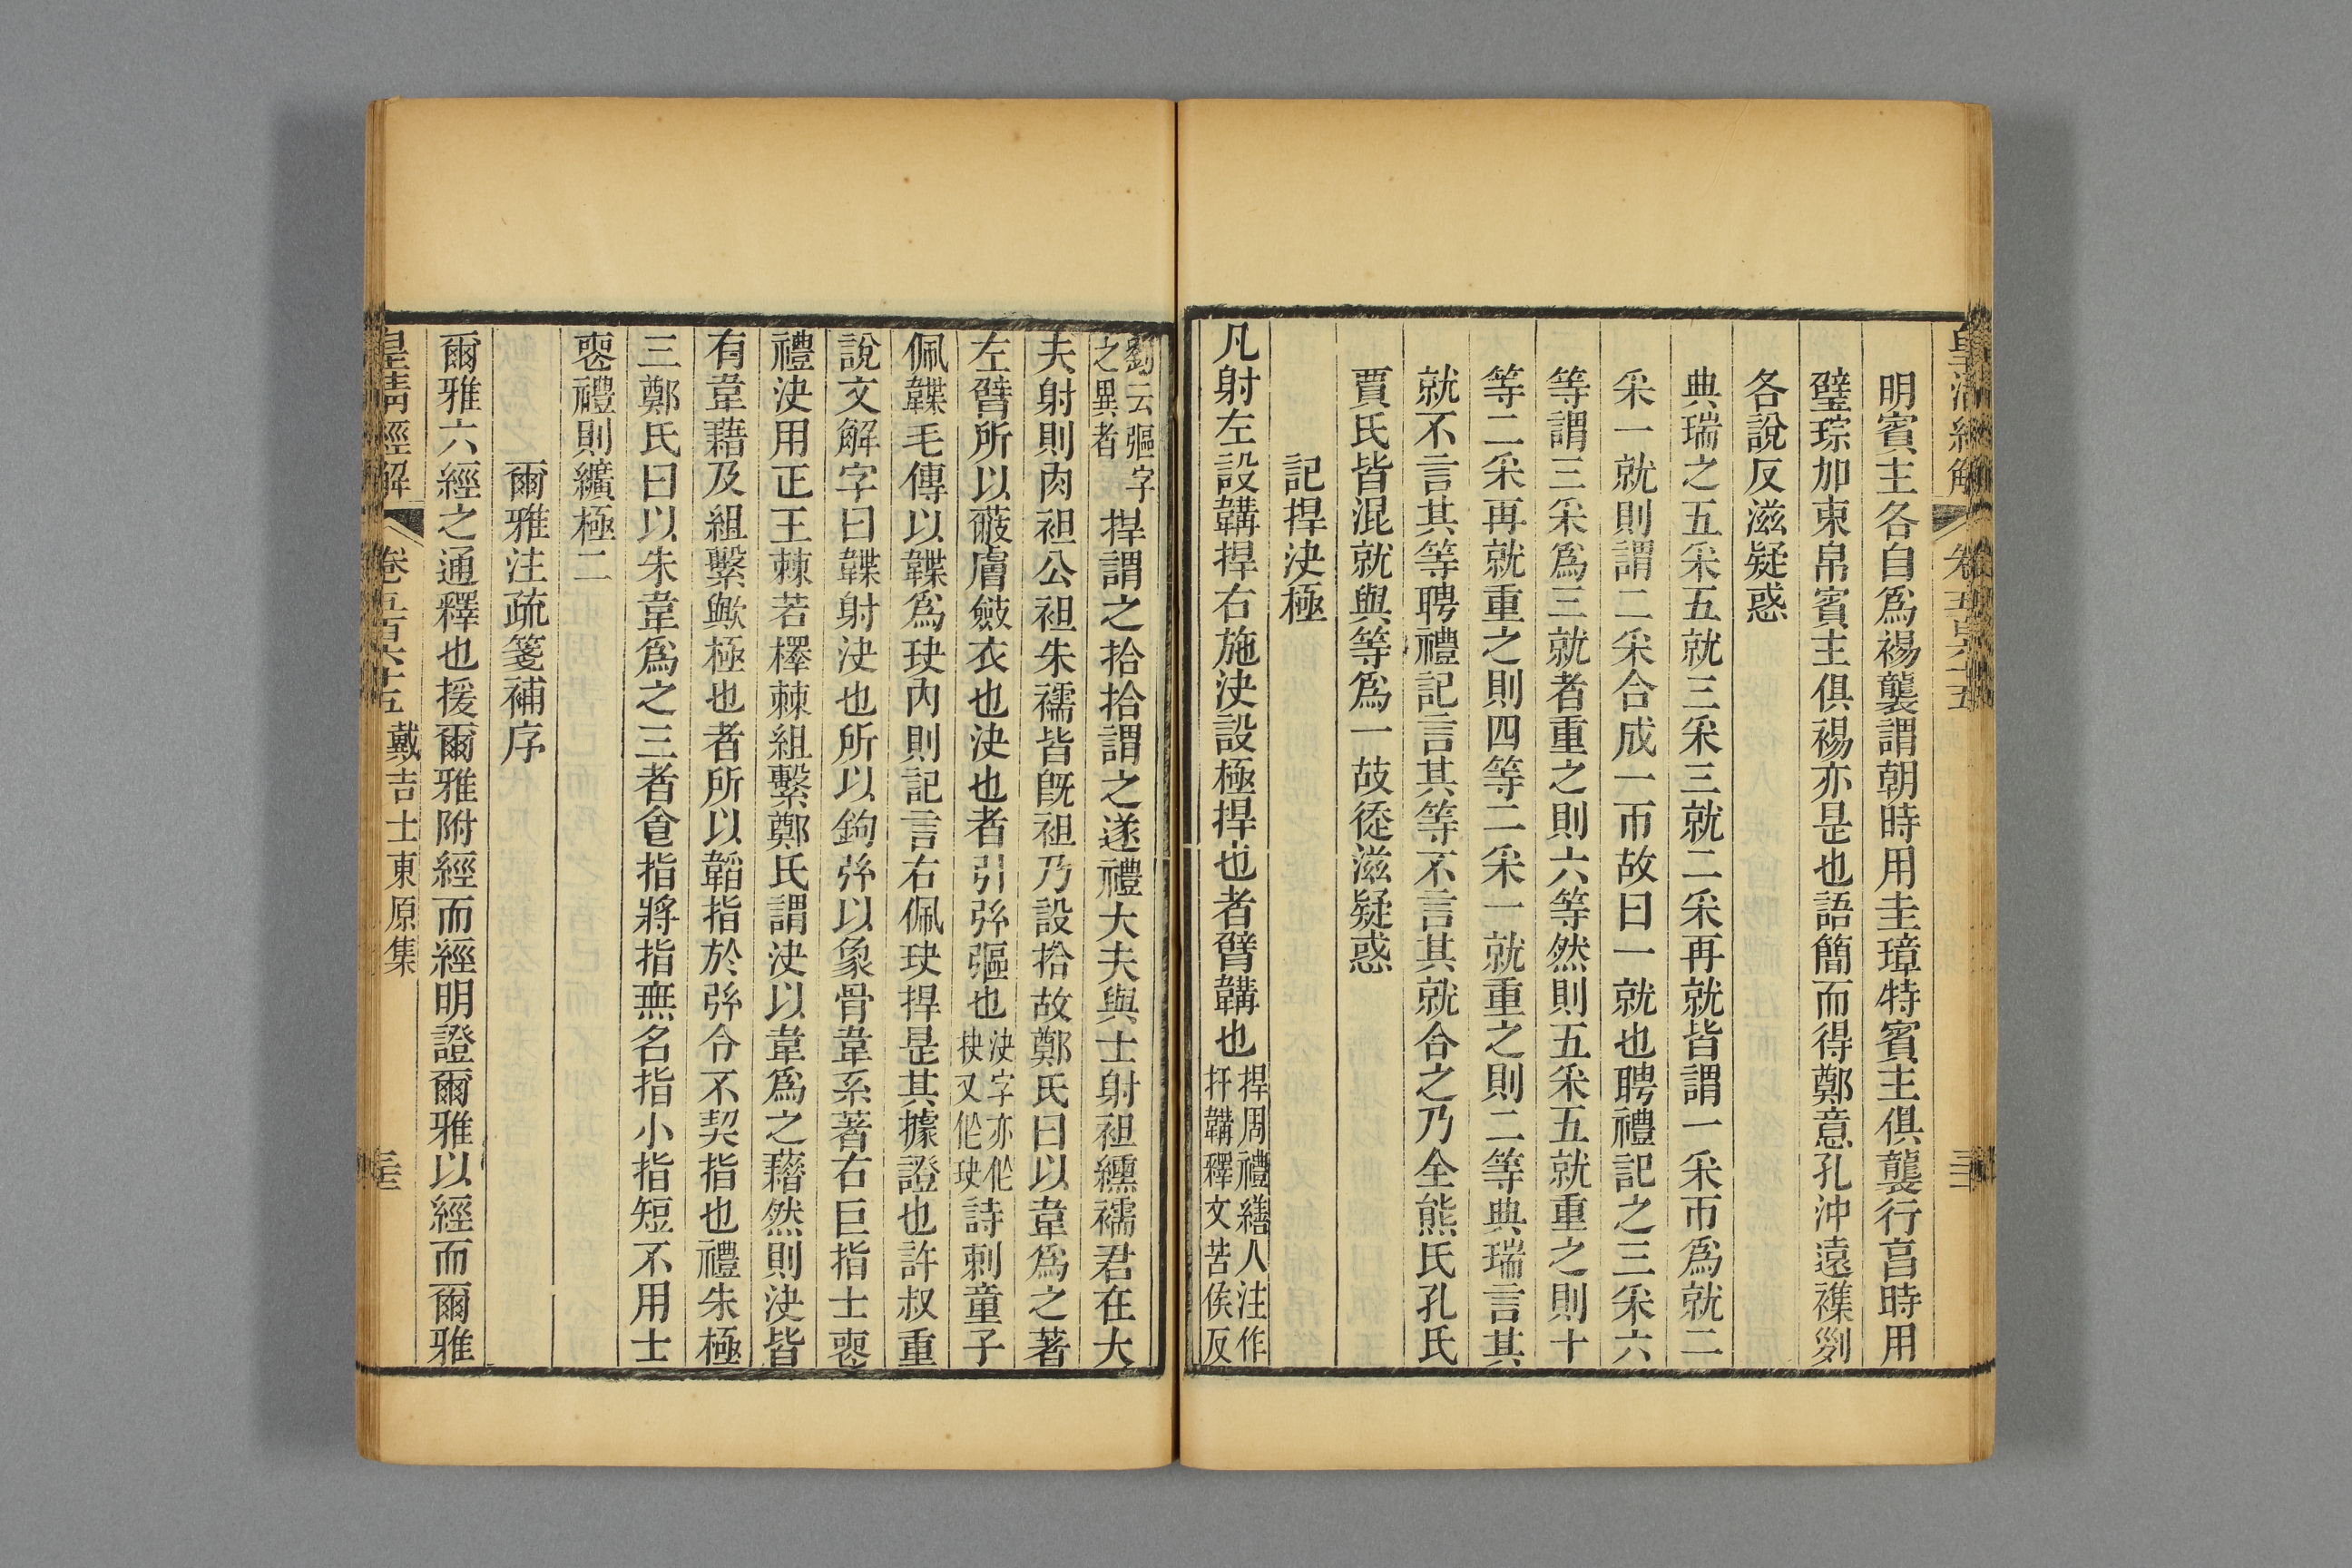 皇清經解 卷五百六十五 三十二
明賓主各自為裼襲謂朝時用圭璋特賓主俱襲行亯時用
璧琮加束帛賓主俱裼亦是也語簡而得鄭意孔沖遠襍列
各說反滋疑惑
典瑞之五采五就三采三就二采再就皆謂一采帀為就二
采一就則謂二采合成一帀故曰一就也聘禮記之三采六
等謂三采為三就者重之則六等然則五采五就重之則十
等二采再就重之則四等二采一就重之則二等典瑞言其
就不言其等聘禮記言其等不言其就合之乃全熊氏孔氏
賈氏皆混就與等為一故徒滋疑惑
記捍決極
凡射左設韝捍右施決設極捍也者臂韝也捍周禮繕人注作
扞韝釋文苦侯反
劉云彄字
之異者捍謂之拾拾謂之遂禮大夫與士射袒纁襦君在大
夫射則肉袒公袒朱襦皆旣袒乃設拾故鄭氏曰以韋為之著
左臂所以蔽膚斂衣也決也者引弦彄也決字亦作
抉又作玦詩刺童子
佩韘毛傳以韘為玦內則記言右佩玦捍是其據證也許叔重
說文解字曰韘射決也所以鉤弦以象骨韋系著右巨指士喪
禮決用正王棘若檡棘組繫鄭氏謂決以韋為之藉然則決皆
有韋藉及組繫歟極也者所以韜指於弦令不契指也禮朱極
三鄭氏曰以朱韋為之三者食指將指無名指小指短不用士
喪禮則纊極二
爾雅注疏箋補序
爾雅六經之通釋也援爾雅附經而經明證爾雅以經而爾雅
皇清經解 卷五百六十五 戴吉士東原集